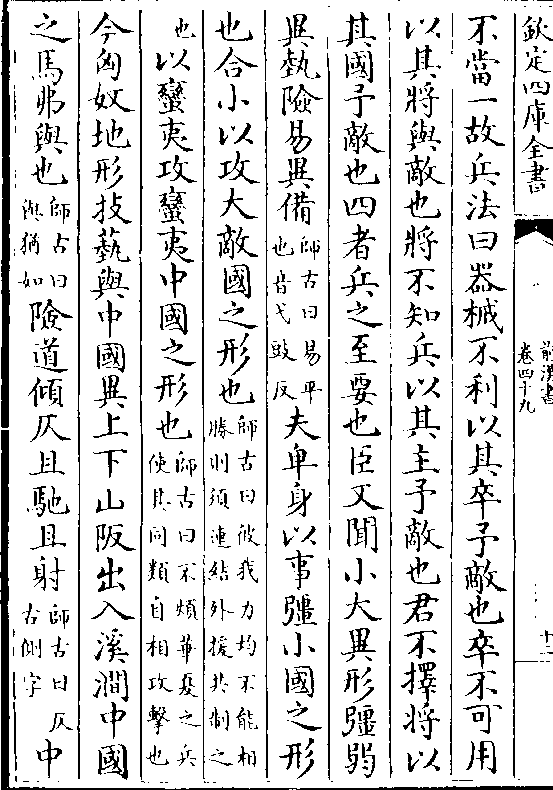 欽定四庫全書
前漢書
卷四十九
十二
不當一故兵法曰器械不利以其卒予敵也卒不可用
以其將與敵也將不知兵以其主予敵也君不擇將以
其國予敵也四者兵之至要也臣又聞小大異形彊弱
異埶險易異備師古曰易平也音弋䜴反夫卑身以事彊小國之形
也合小以攻大敵國之形也師古曰彼我力均不能相勝則須連結外援共制之
也以蠻夷攻蠻夷中國之形也師古曰不煩華夏之兵使其同類自相攻擊也
今匈奴地形技藝與中國異上下山阪出入溪澗中國
之馬弗與也師古曰與猶如險道傾仄且馳且射師古曰仄古側字中